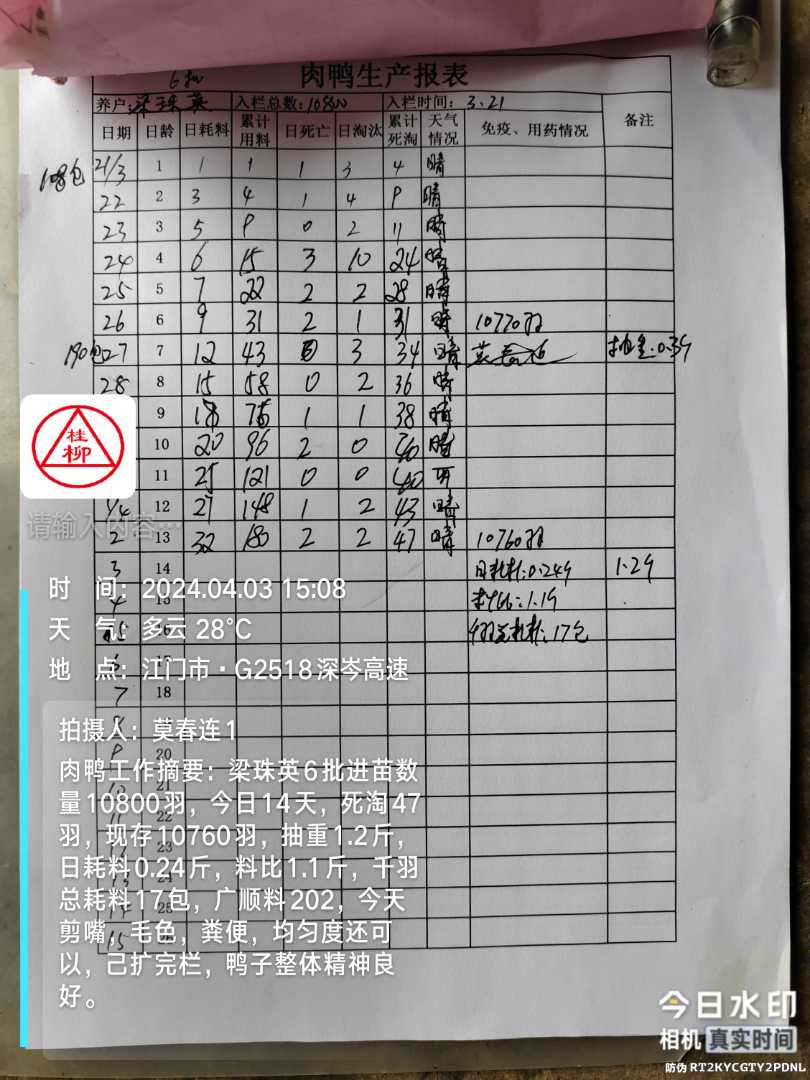 6批
肉鸭生产报表
养户:梁珠英 入栏总数:10800 入栏时间:3.21
日期 日龄 日耗料 累计用料 日死亡 日淘汰 累计死淘 天气情况 免疫、用药情况 备注
108包 21/3 1 1 1 1 3 4 晴
22 2 3 4 1 4 9 晴
23 3 5 9 0 2 11 晴
24 4 6 15 3 10 24 晴
25 5 7 22 2 2 28 晴
26 6 9 31 2 1 31 晴 10770羽
190包 27 7 12 43 0 3 34 晴 莫春连 抽重:0.39
28 8 15 58 0 2 36 晴
9 18 76 1 1 38 晴
10 20 96 2 0 40 晴
11 25 121 0 0 40
1/4 12 27 148 1 2 43 晴
2 13 32 180 2 2 47 晴 10760羽
3 14 日耗料:0.24斤 1.2斤
4 15 料比:1.1斤
5 16 千羽总耗料:17包
6 17
7 18
8
9 20
10 21
11
12 23
13 24
14 25
15
桂柳
请输入内容…
时 间:2024.04.03 15:08
天 气:多云 28℃
地 点:江门市·G2518深岑高速
拍摄人:莫春连1
肉鸭工作摘要:梁珠英6批进苗数
量10800羽,今日14天,死淘47
羽,现存10760羽,抽重1.2斤,
日耗料0.24斤,料比1.1斤,千羽
总耗料17包,广顺料202,今天
剪嘴,毛色,粪便,均匀度还可
以,己扩完栏,鸭子整体精神良
好。
今日水印
相机 真实时间
防伪 RT2KYCGTY2PDNL